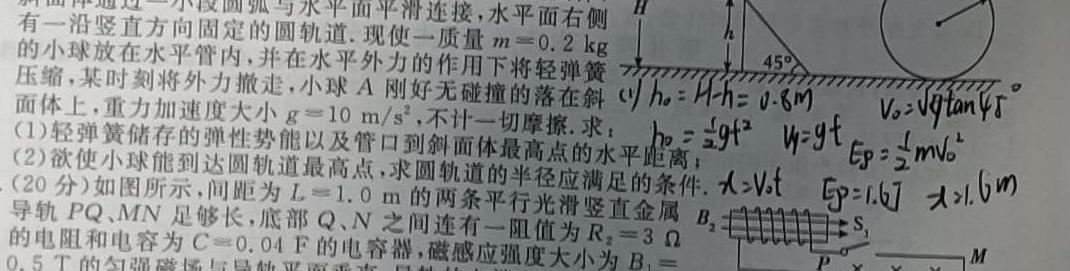 斜面体通过一小段圆弧与水平面平滑连接,水平面右侧
有一沿竖直方向固定的圆轨道.现使一质量 m=0.2 kg
的小球放在水平管内,并在水平外力的作用下将轻弹簧
压缩,某时刻将外力撤走,小球 A 刚好无碰撞的落在斜
面体上,重力加速度大小 g=10 m/s²,不计一切摩擦.求:
(1)轻弹簧储存的弹性势能以及管口到斜面体最高点的水平距离;
(2)欲使小球能到达圆轨道最高点,求圆轨道的半径应满足的条件.
(20 分)如图所示,间距为 L=1.0 m 的两条平行光滑竖直金属
导轨 PQ、MN 足够长,底部 Q、N 之间连有一阻值为 R₂=3 Ω
的电阻和电容为 C=0.04 F 的电容器,磁感应强度大小为 B₁=
0.5 T 的匀强磁场与导轨平面垂直
H
h
45°
(1) h₀=H-h=0.8m
V₀=Vytan45°
h₀=½gt² Vy=gt Ep=½mV₀²
x=V₀t Ep=1.6J x=1.6m
B₂
S₁
P
M
× ×